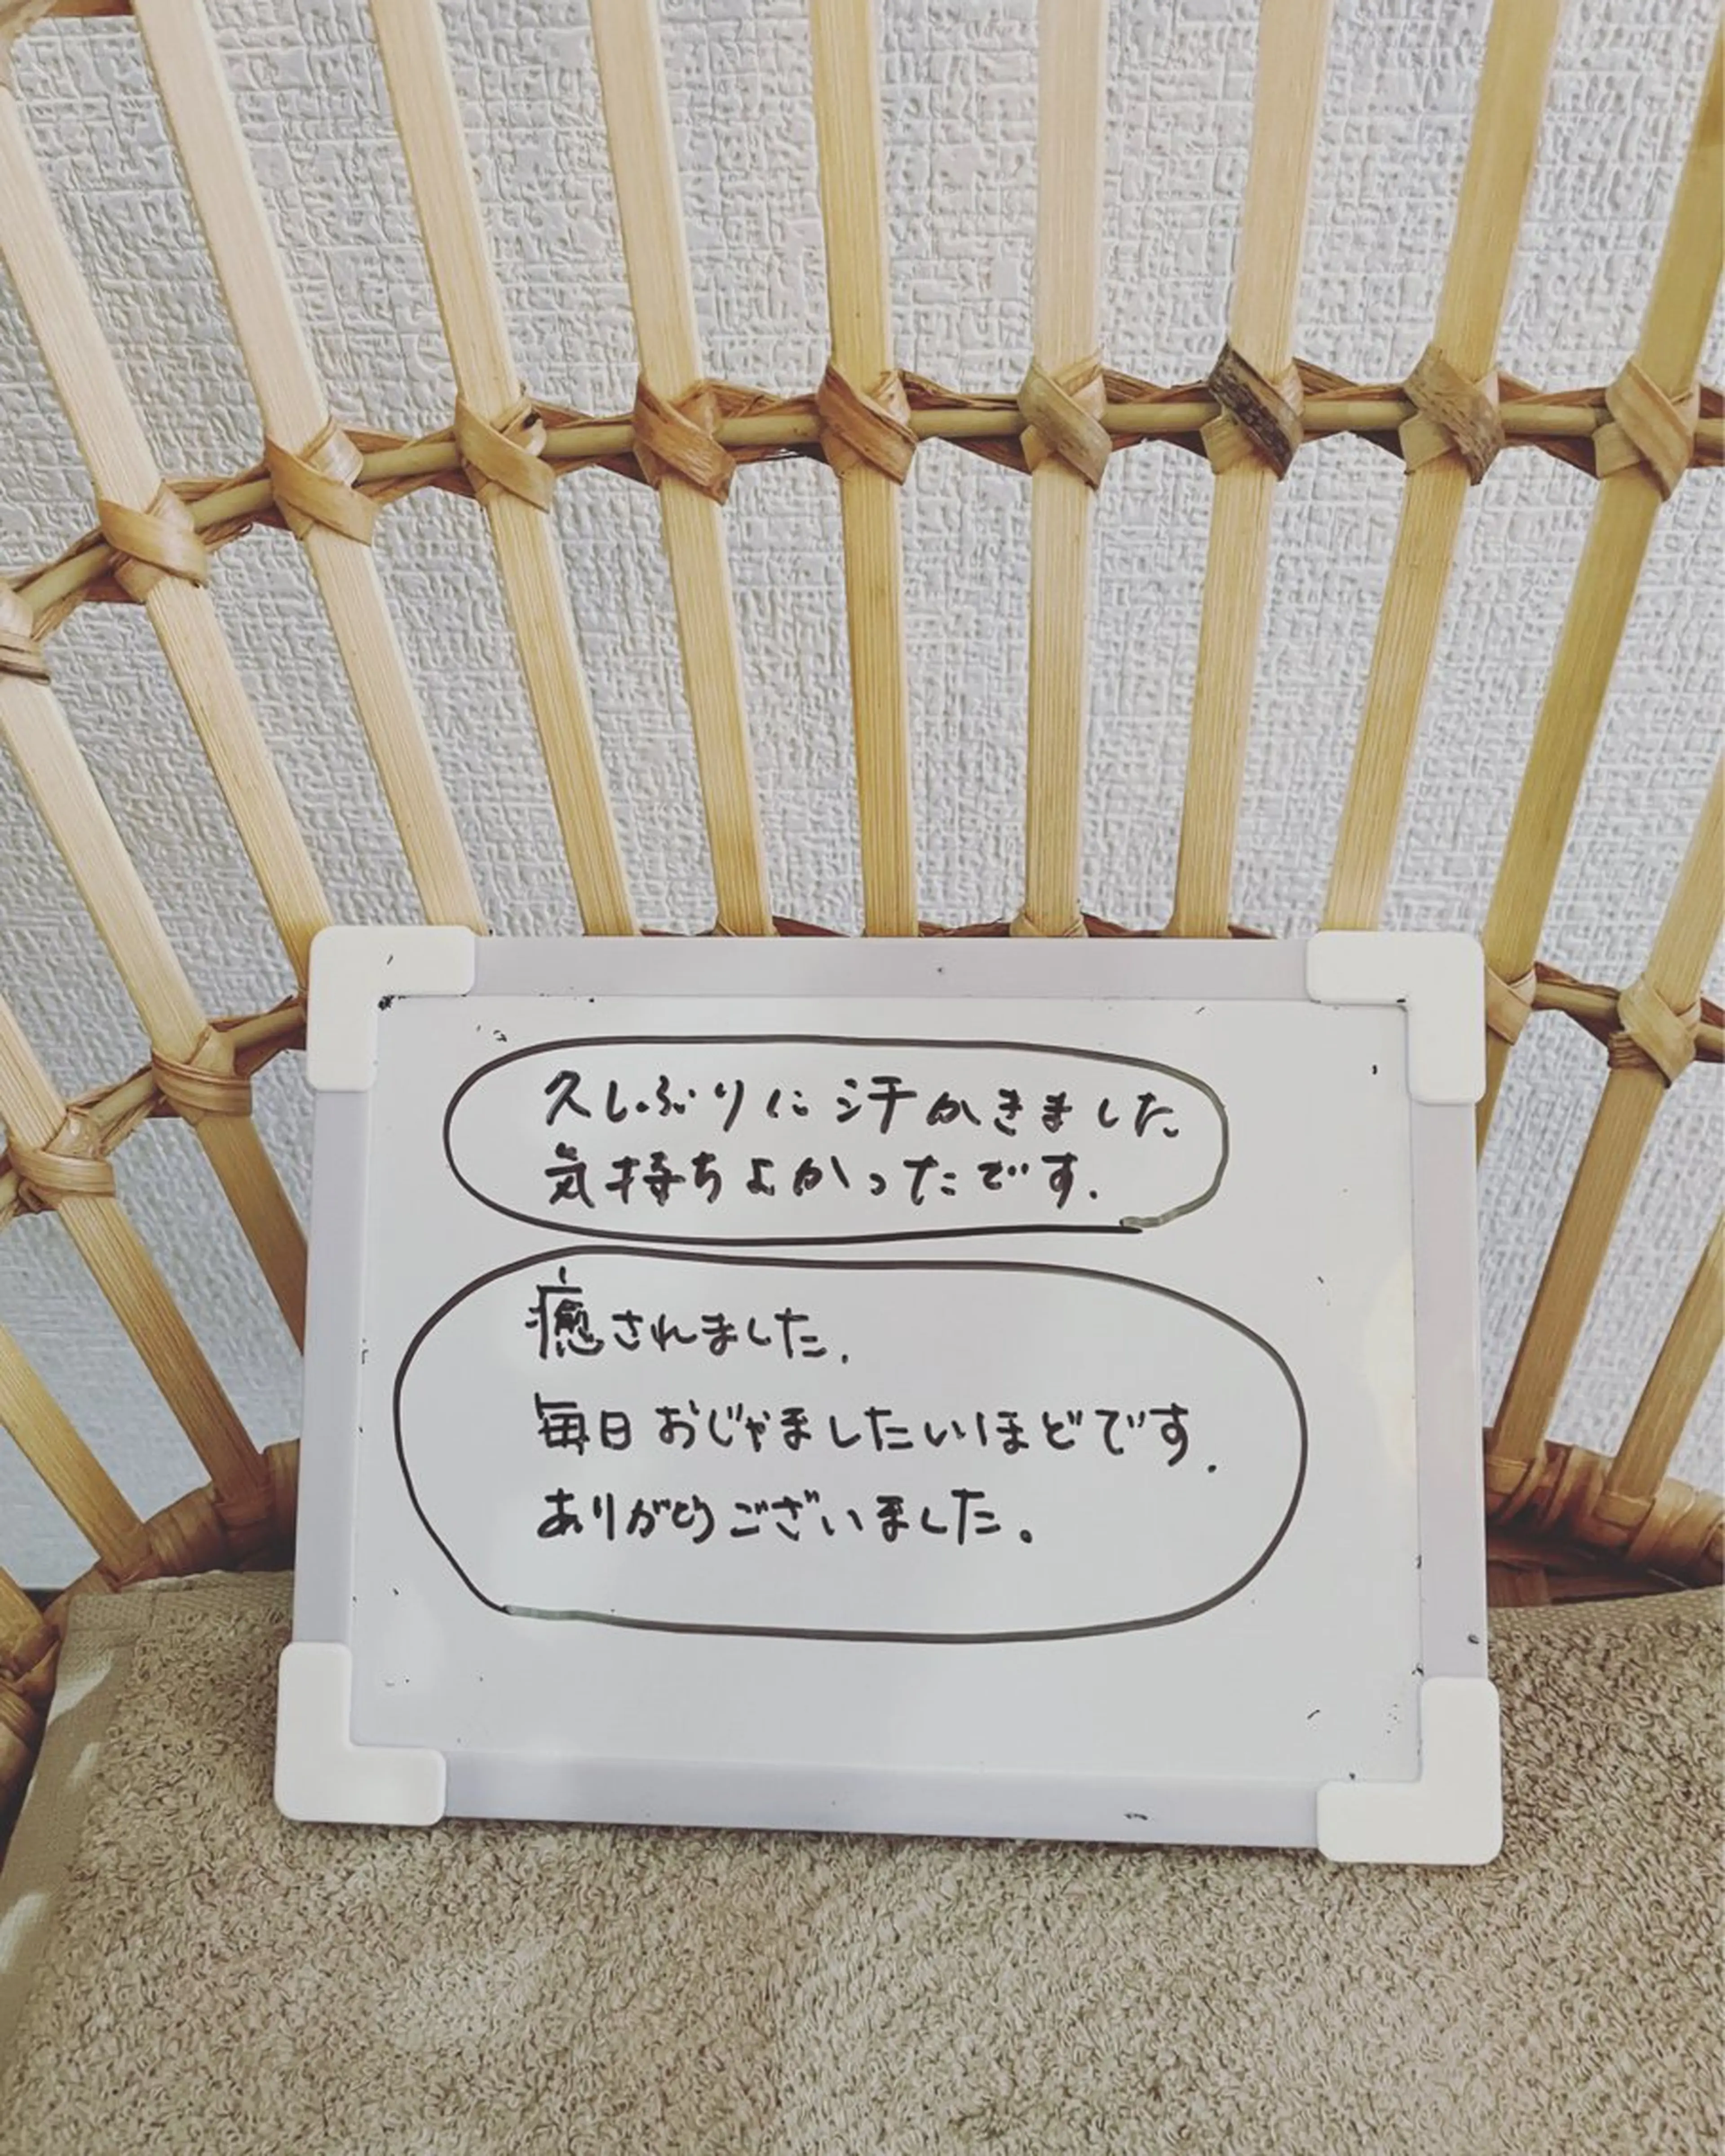 久しぶりに汗かきました
気持ちよかったです.
癒されました.
毎日おじゃましたいほどです.
ありがとうございました。